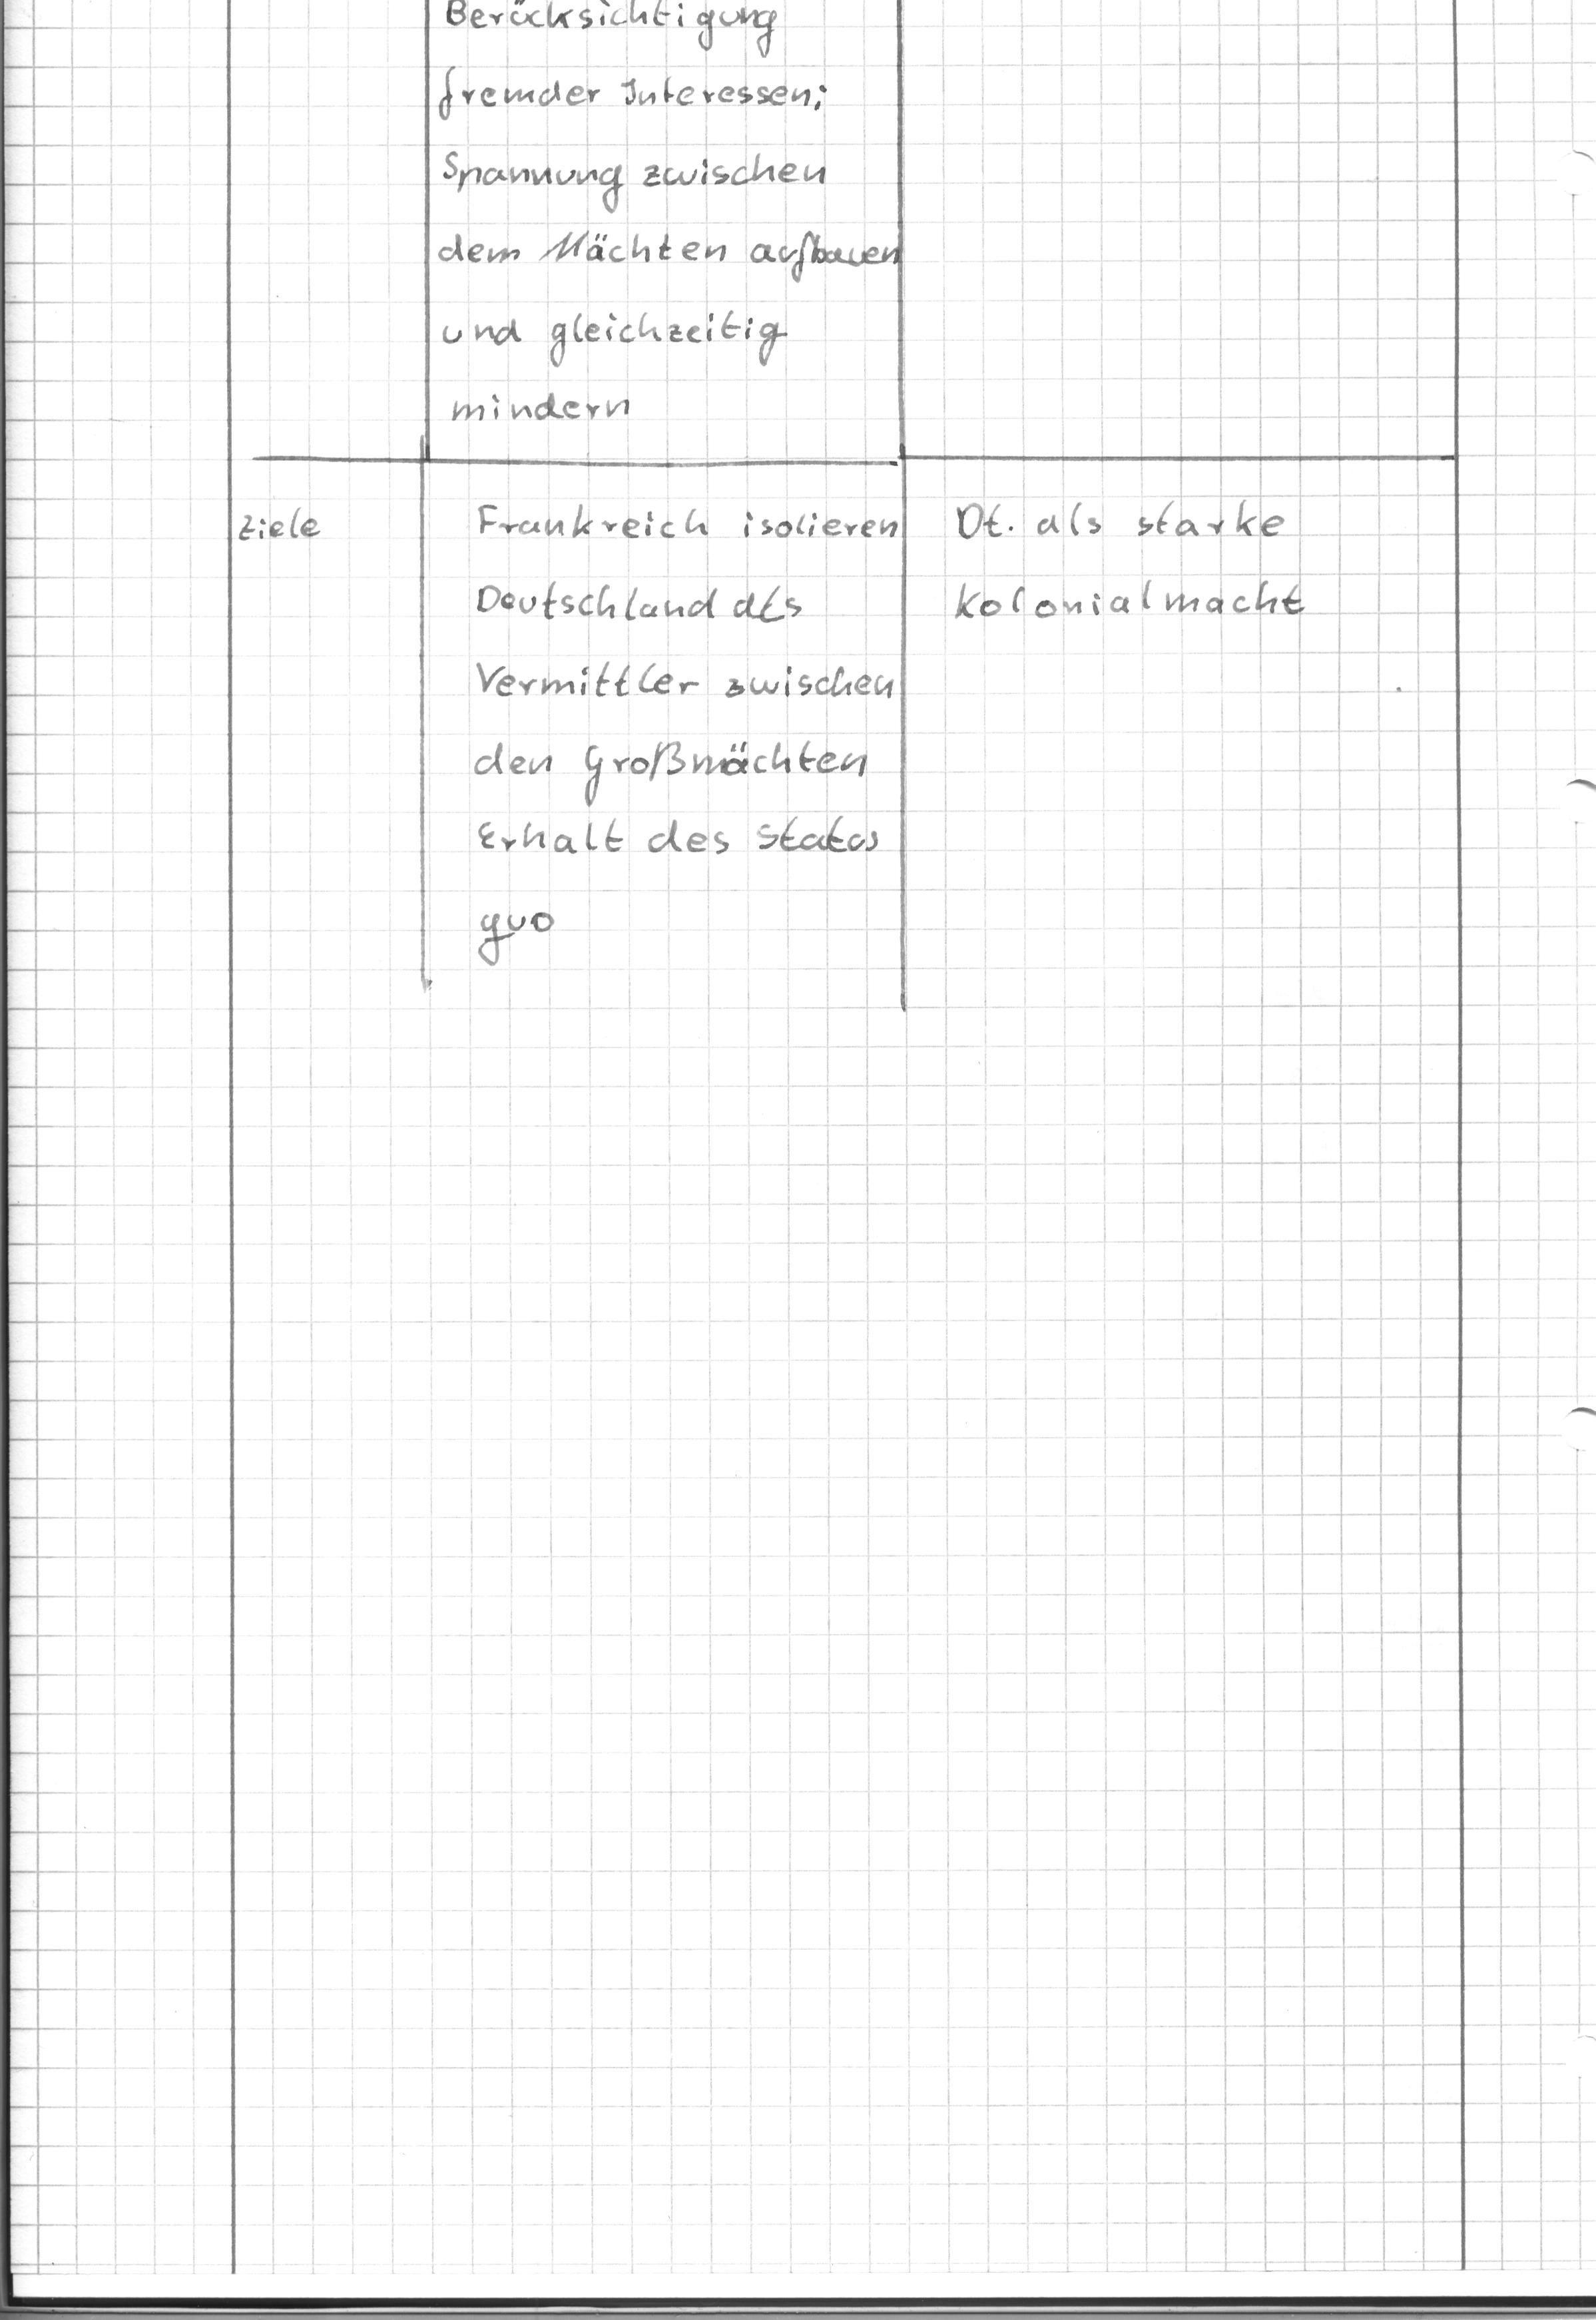 Berücksichtigung
fremder Interessen;
Spannung zwischen
dem Mächten aufbauen
und gleichzeitig
mindern
Ziele
Frankreich isolieren
Deutschland als
Vermittler zwischen
den Großmächten
Erhalt des Status
quo
Dt. als starke
Kolonialmacht